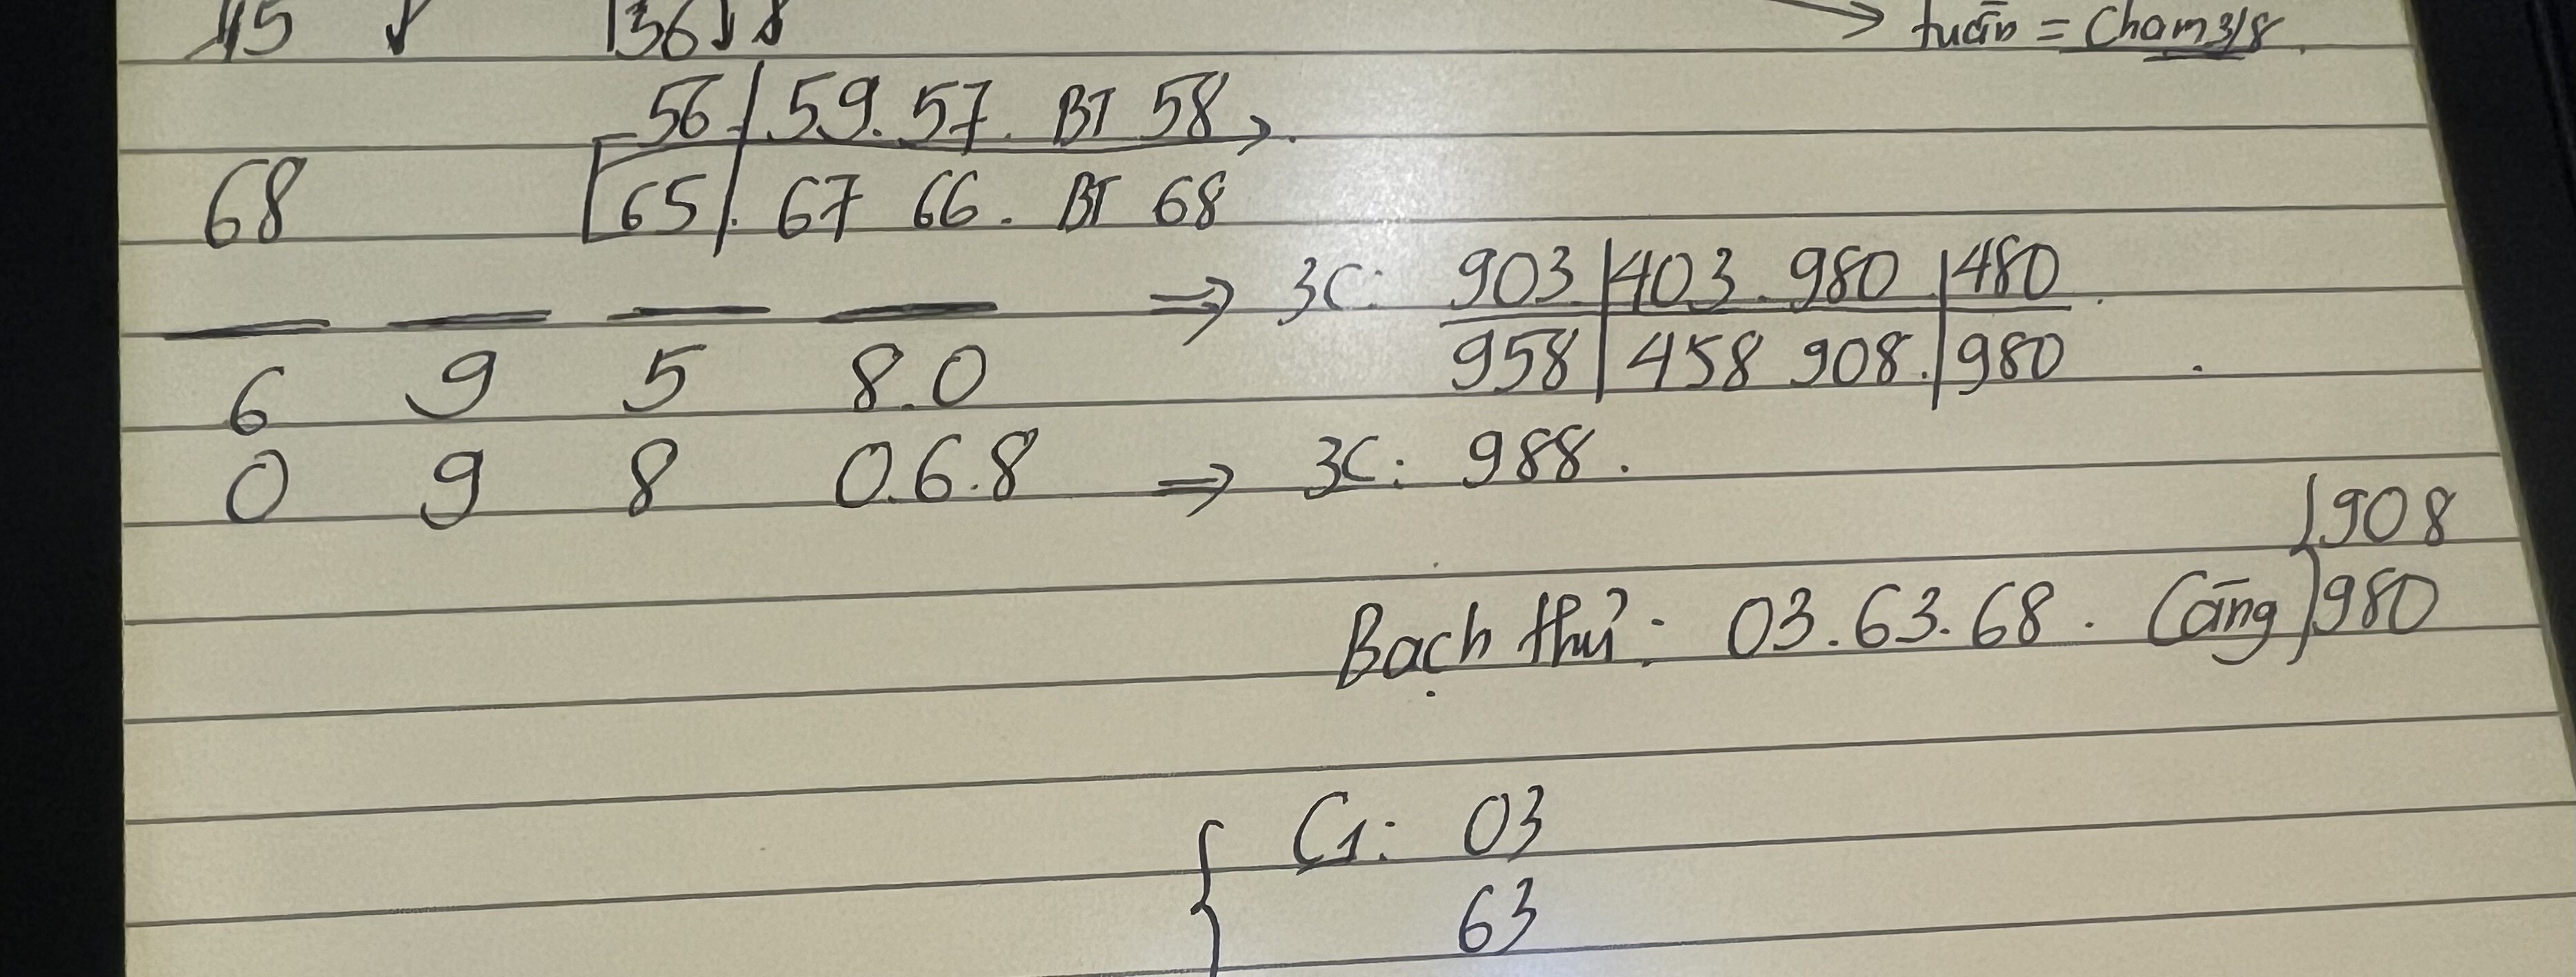 45 136
→ tuần = Chạm 3/8.
56 | 59. 57. BT 58
68 65 | 67 66. BT 68
⇒ 3C: 903. | 403. 980. | 480
6 9 5 8.0 958 | 458 908. | 980
0 9 8 0.6.8 ⇒ 3C: 988.
908
Bạch thủ: 03.63.68. Càng 980
C1: 03
63